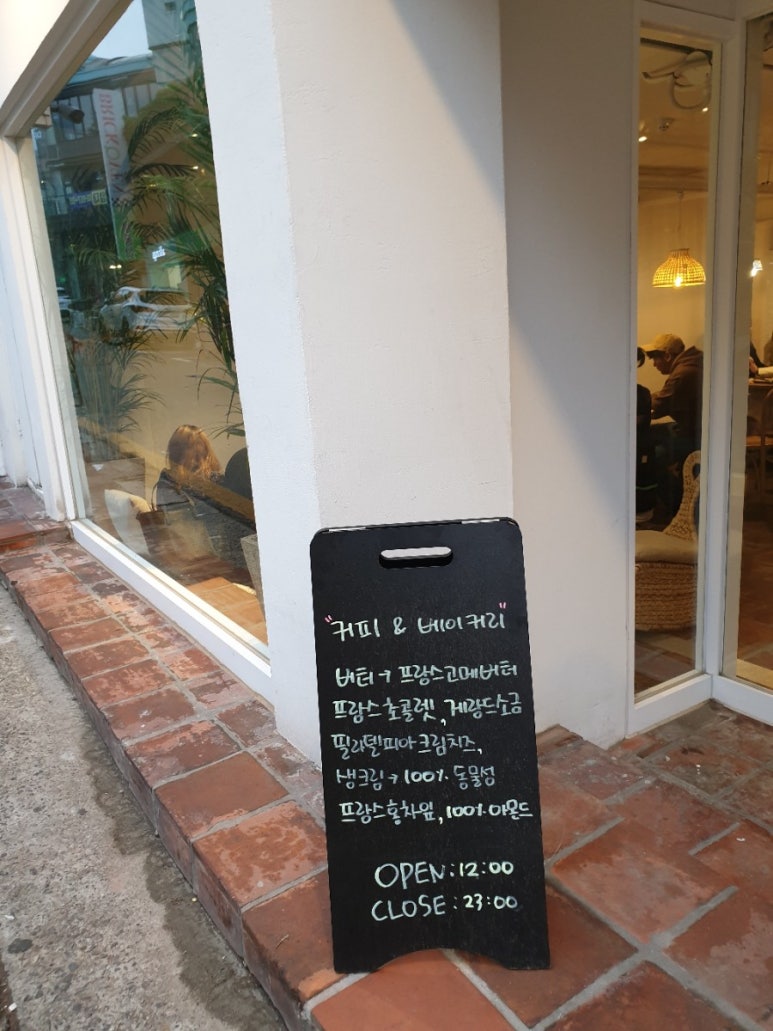 "커피 & 베이커리"
버터 → 프랑스고메버터
프랑스 초콜렛, 게랑드소금
필라델피아크림치즈,
생크림 → 100% 동물성
프랑스홍차잎, 100% 아몬드
OPEN : 12:00
CLOSE : 23:00